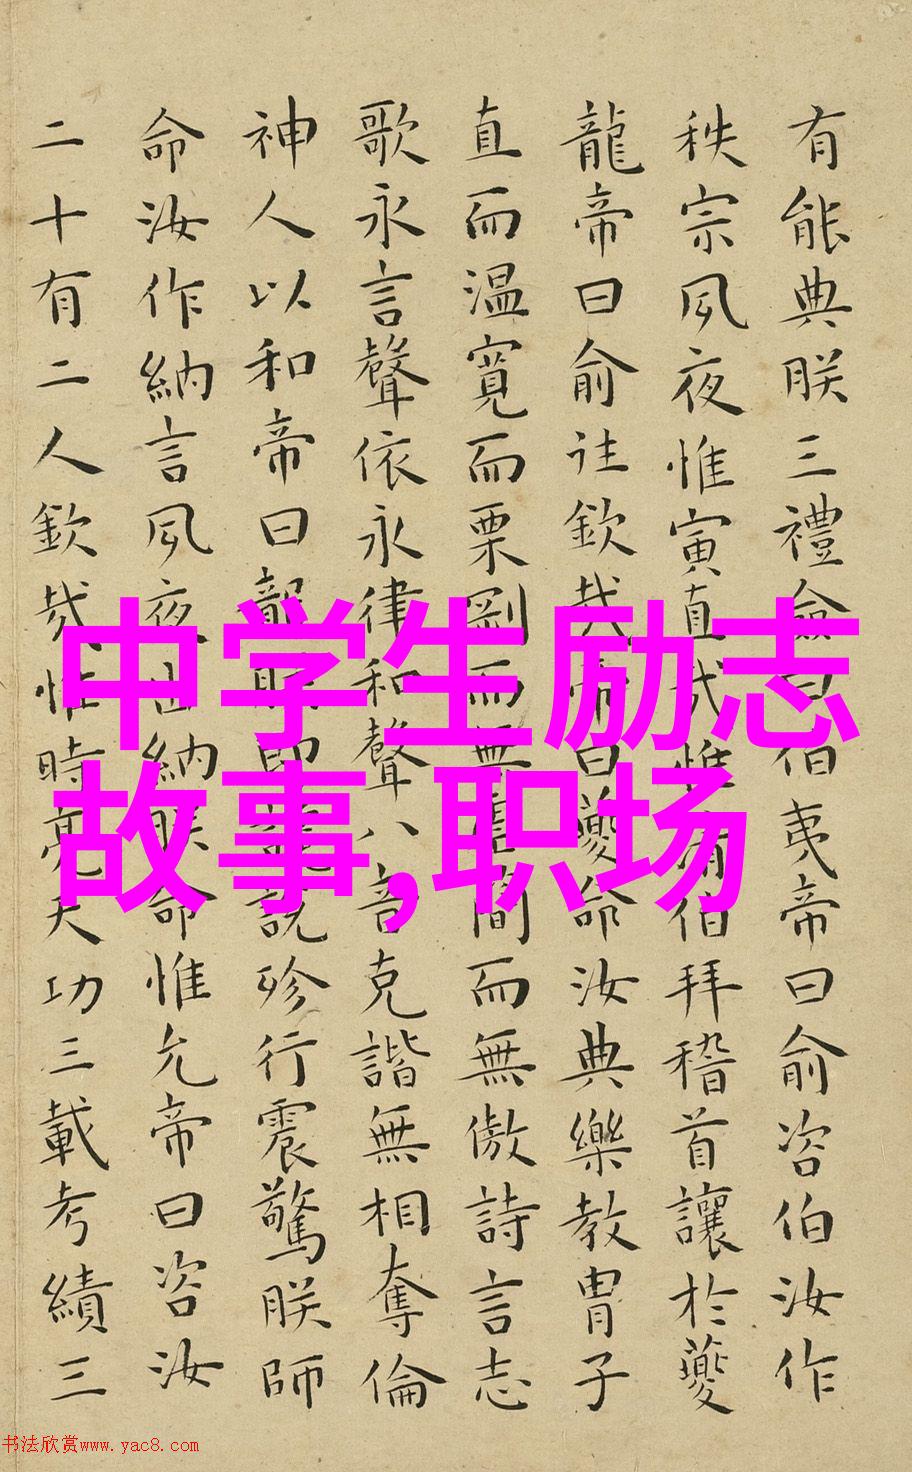 有能典朕三禮僉曰伯夷帝曰俞咨伯汝作
秩宗夙夜惟寅直哉惟清伯拜稽首讓於夔
龍帝曰俞往欽哉帝曰夔命汝典樂教胄子
直而温寬而栗剛而無虐簡而無傲詩言志
歌永言聲依永律和聲八音克諧無相奪倫
神人以和帝曰龍朕堲讒說殄行震驚朕師
命汝作納言夙夜出納朕命惟允帝曰咨汝
二十有二人欽哉惟時亮天功三載考績三
中学生励志
故事,职场
书法欣赏www.yac8.com